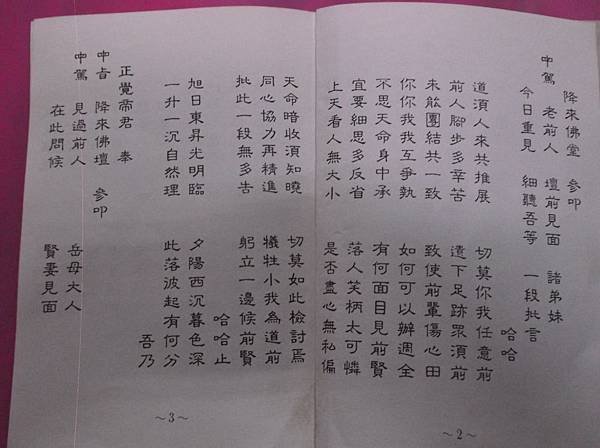 降來佛堂 參叩
中駕 老前人 壇前見面 諸弟妹
今日重見 細聽吾等 一段批言
哈哈
道須人來共推展 切莫你我任意前
前人腳步多辛苦 遺下足跡眾須前
未能團結共一致 致使前輩傷心田
你你我我互爭執 如何可以辦週全
不思天命身中承 有何面目見前賢
宜要細思多反省 落人笑柄太可憐
上天看人無大小 是否盡心無私偏
~2~
天命暗收須知曉 切莫如此檢討焉
同心協力再精進 犧牲小我為道前
批此一段無多告 躬立一邊候前賢
哈哈止
旭日東昇光明臨 夕陽西沉暮色深
一升一沉自然理 此落波起有何分
吾乃
正覺帝君 奉
中旨 降來佛壇 參叩
中駕 見過前人 岳母大人
在此問候 賢妻見面
~3~